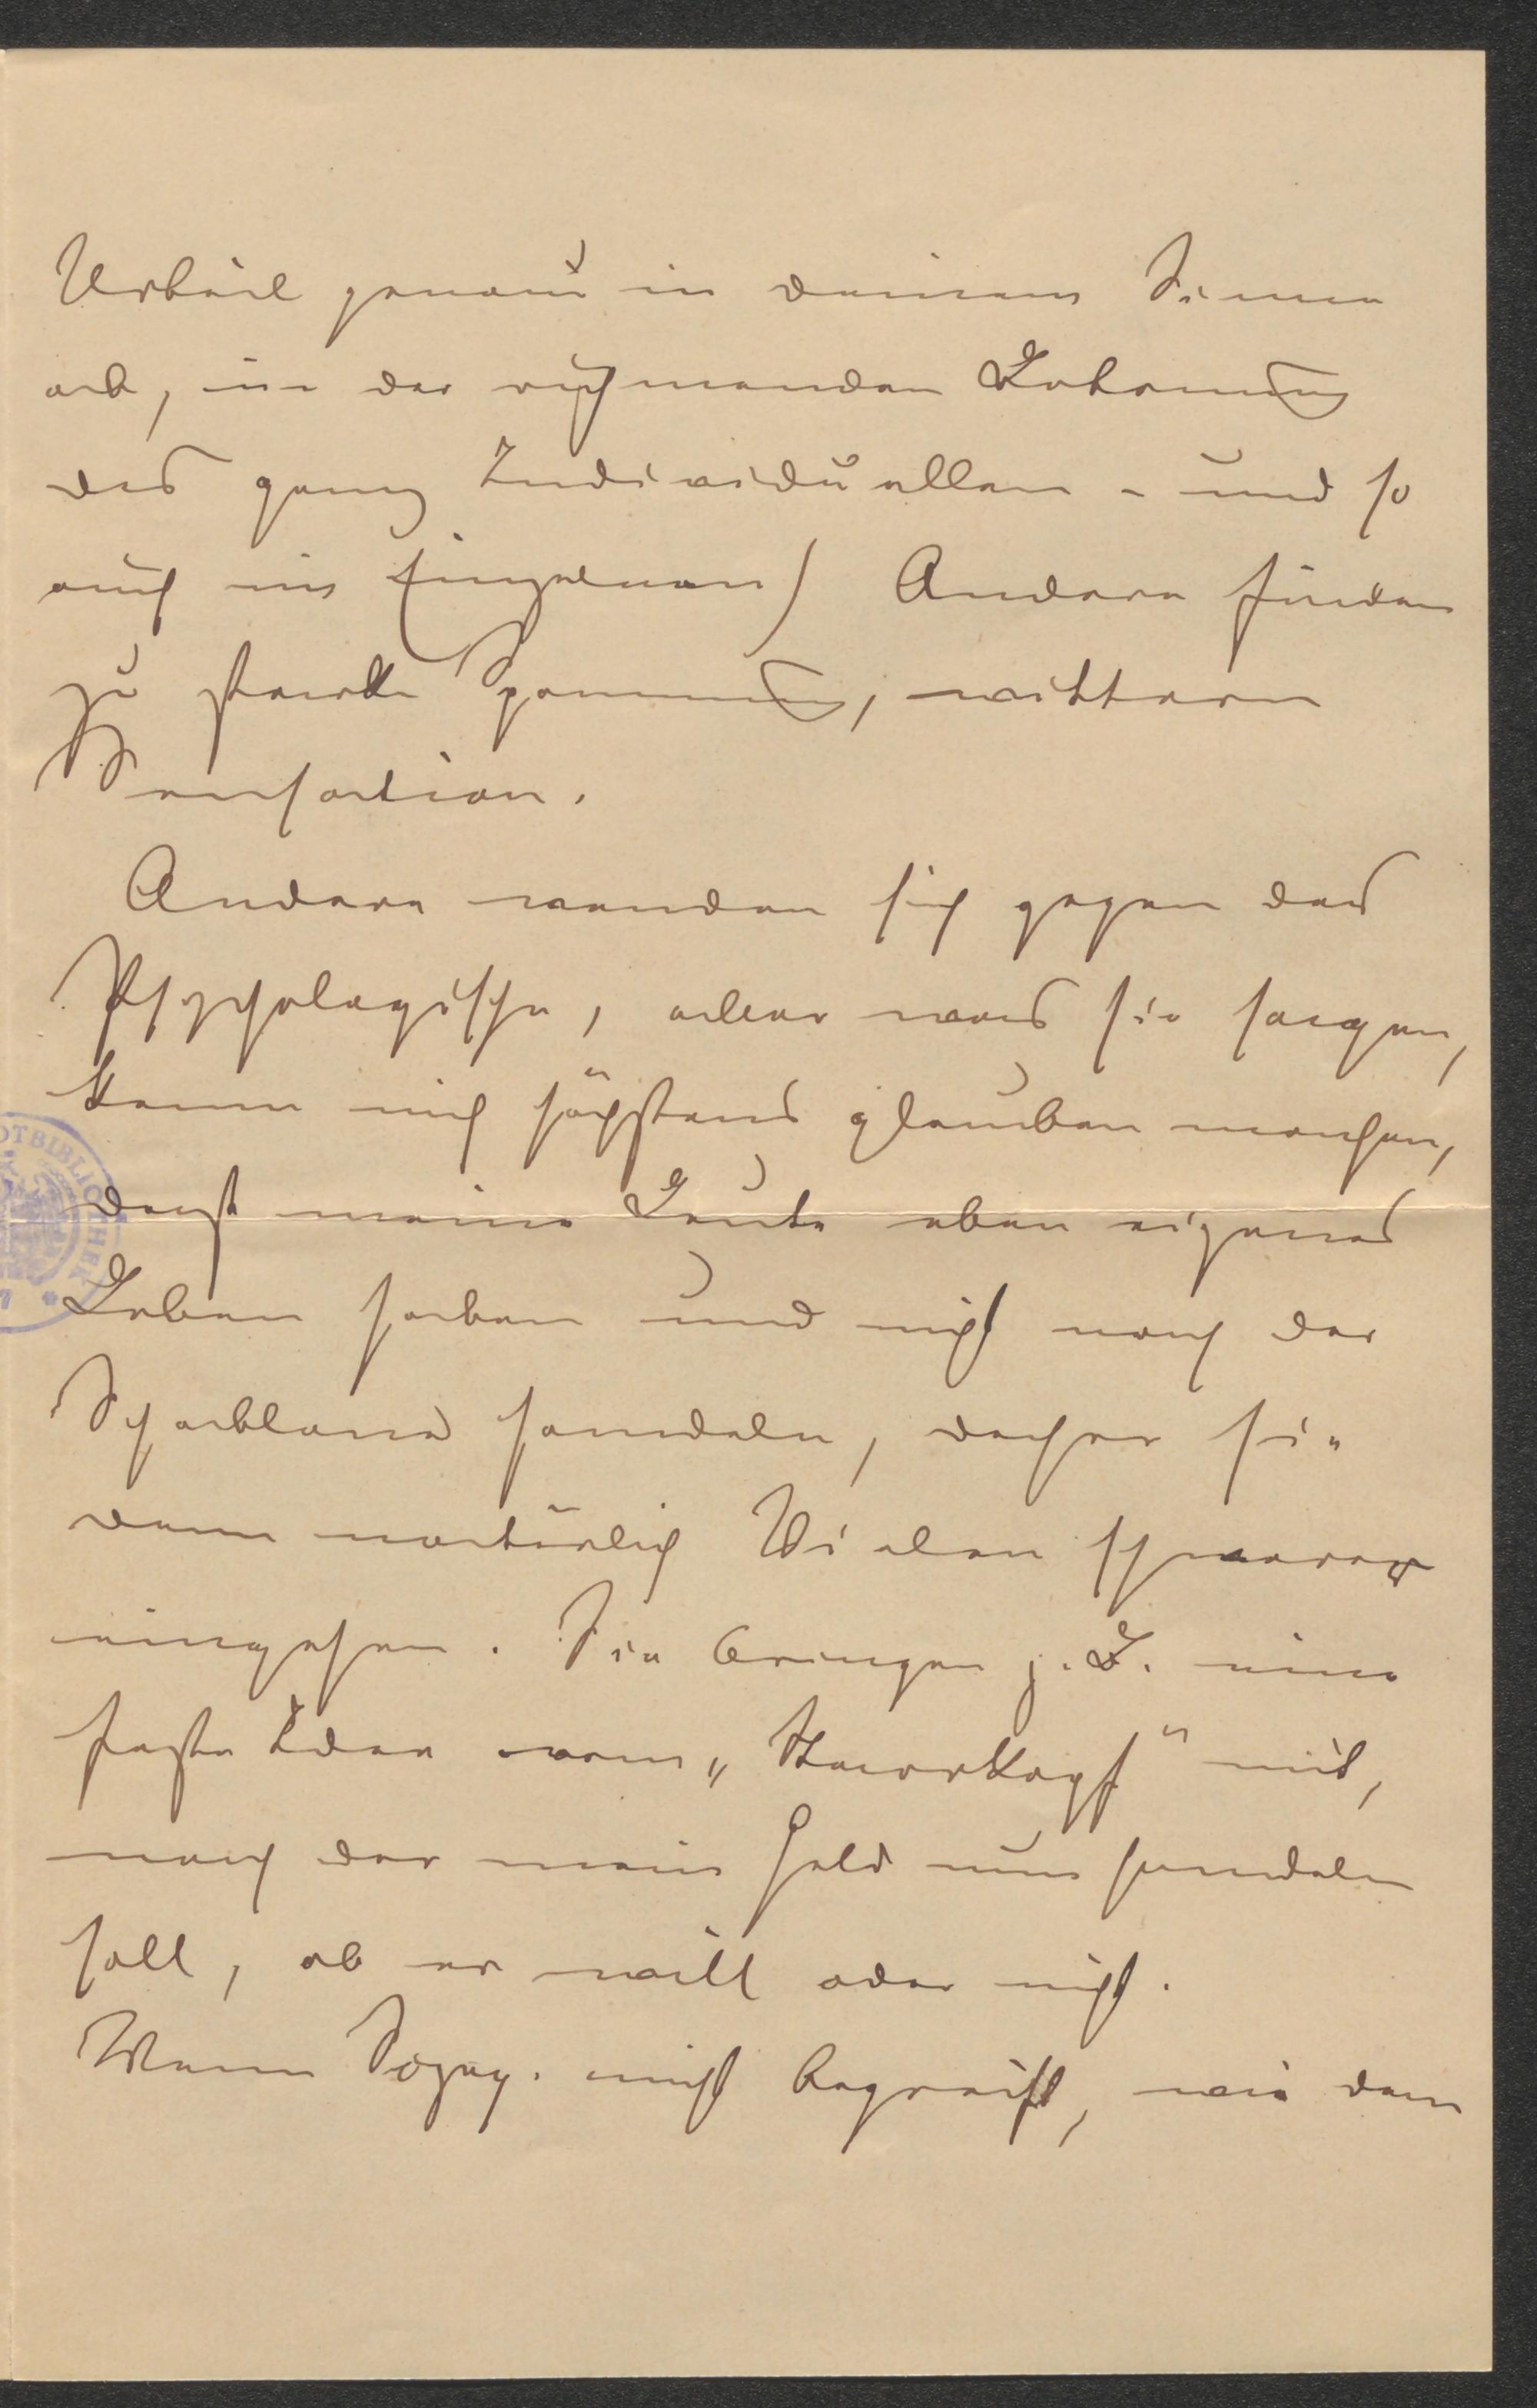 Urteil genau in deinem Sinne
ab, in der rühmenden Betonung
des ganz Individuellen - und so
auch im Einzelnen) Andere finden
zu starke Spannung, wittern
Sensation.
Andere wenden sich gegen das
Psychologische, aber was sie sagen,
kann mich höchstens glauben machen,
dass meine Leute eben eigenes
Leben haben und nicht nach der
Schablone handeln, daher sie
denn natürlich Vielen schwerer
eingehen. Sie bringen z. B. eine
feste Idee vom „Starrkopf" mit,
nach der mein Held nun handeln
soll, ob er will oder nicht.
Wenn nicht begreift, wie dem
OTBIBLIOTHEK